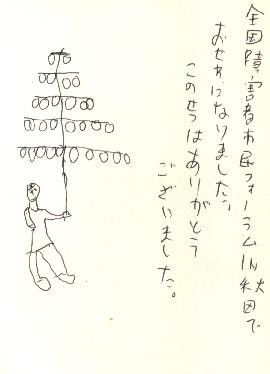 全国障害者市民フォーラムIN秋田で
おせわになりました。
このせつはありがとう
ございました。